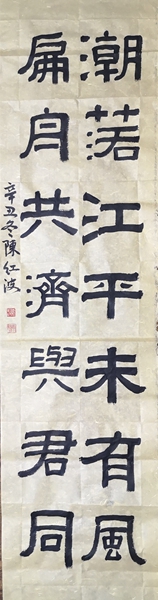 潮落江平未有風
扁舟共濟與君同
辛丑冬陳红波